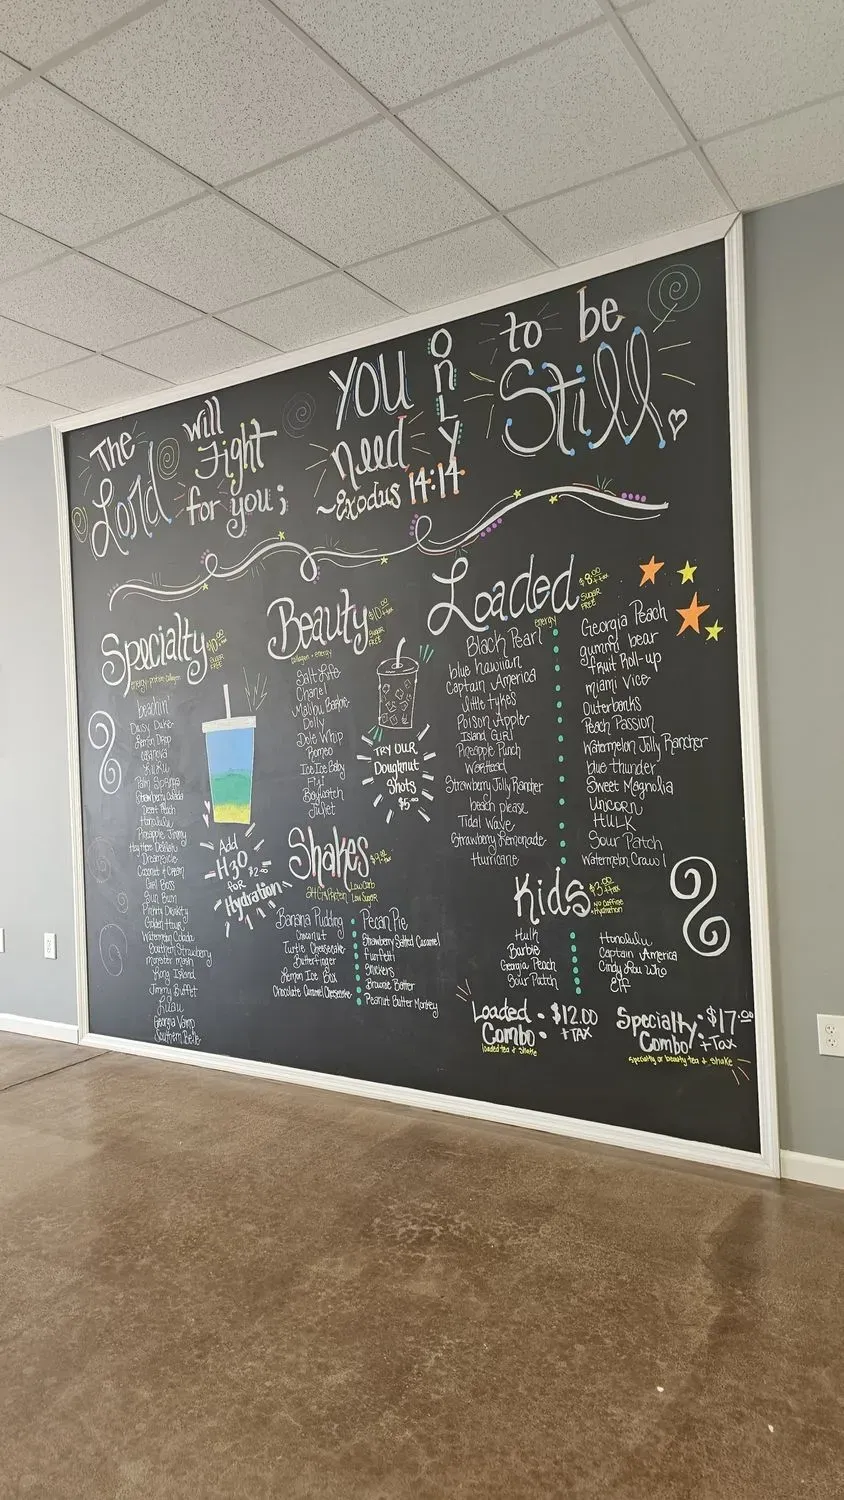 The
Lord
will
Fight
for you;
YOU
ONLY
need
to be
Still.
~Exodus 14:14
Specialty
$10.00
+tax
SUGAR
FREE
energy · protein · collagen
beachin'
Daisy Duke
Lemon Drop
Casanova
Palm Springs
Strawberry Colada
Desert Peach
Honolulu
Pineapple Jimmy
Dreamsicle
Coconut & Cream
Girl Boss
Sun Burn
Golden Hour
Watermelon Colada
Southern Strawberry
Monster Mash
Long Island
Jimmy Buffet
Lulau
Georgia Vamp
Southern Belle
Add
H3O $2.00
for
Hydration
Beauty
$10.00
+tax
SUGAR
FREE
collagen + energy
Salt Life
Chanel
Malibu Barbie
Dolly
Dole Whip
Romeo
Ice Ice Baby
Fiji
Baywatch
Juliet
TRY OUR
Doughnut
Shots
$5.00
Shakes
Low Carb
Low Sugar
Banana Pudding
Coconut
Turtle Cheesecake
Butterfinger
Lemon Ice Box
Chocolate Caramel Cheesecake
Pecan Pie
Strawberry Salted Caramel
Funfetti
Snickers
Brownie Batter
Peanut Butter Monkey
Loaded
$8.00
+tax
SUGAR
FREE
energy
Black Pearl
blue hawiian
Captain America
little tykes
Poison Apple
Island Girl
Pineapple Punch
Warhead
Strawberry Jolly Rancher
beach please
Tidal Wave
Strawberry Lemonade
Hurricane
Georgia Peach
gummi bear
fruit Roll-up
miami Vice
Outerbanks
Peach Passion
Watermelon Jolly Rancher
blue thunder
Sweet Magnolia
Unicorn
HULK
Sour Patch
Watermelon Crawl
Kids
$3.00
+tax
NO Caffine
+Hydration
Hulk
Barbie
Georgia Peach
Sour Patch
Honolulu
Captain America
Cindy Lou Who
Elf
Loaded
Combo - $12.00
+TAX
loaded tea + shake
Specialty
Combo - $17.00
+TAX
Specialty or beauty tea + shake